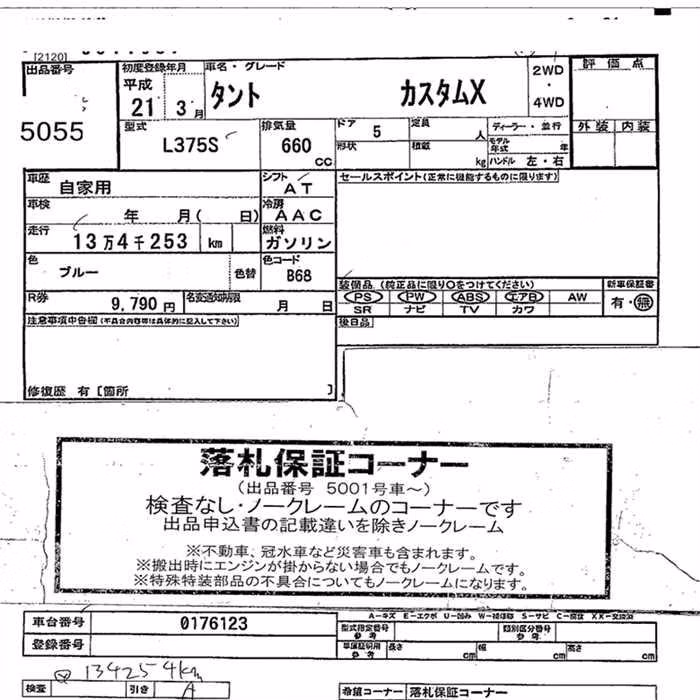 [2120]
出品番号
5055
初度登録年月
平成
21 3月
車名・グレード
タント カスタムX
2WD
4WD
評価点
外装 内装
型式
L375S
排気量
660
cc
ドア
5
定員
人
形状
積載
kg
ディーラー・並行
モデル
年式 年
ハンドル 左・右
車歴
自家用
シフト
AT
セールスポイント(正常に機能するものに限ります)
車検
年 月( 日)
冷房
AAC
走行
13万4千253 km
燃料
ガソリン
色
ブルー
色替
色コード
B68
装備品 (純正品に限り○をつけてください)
新車保証書
PS PW ABS エアB AW
有・無
SR ナビ TV カワ
R券
9,790 円
名変通知期限
月 日
後日品
注意事項申告欄(不具合内容等は具体的に記入して下さい)
修復歴 有 [箇所 ]
落札保証コーナー
(出品番号 5001号車~)
検査なし・ノークレームのコーナーです
出品申込書の記載違いを除きノークレーム
※不動車、冠水車など災害車も含まれます。
※搬出時にエンジンが掛からない場合でもノークレームです。
※特殊特装部品の不具合についてもノークレームになります。
A-キズ E-エクボ U-凹み W-補修跡 S-サビ C-腐食 XX-交換済
車台番号
0176123
型式指定番号
参考
類別区分番号
参考
登録番号
車庫証明用
参考
長さ
cm
幅
cm
高さ
cm
134254km
検査
引き
A
希望コーナー
落札保証コーナー